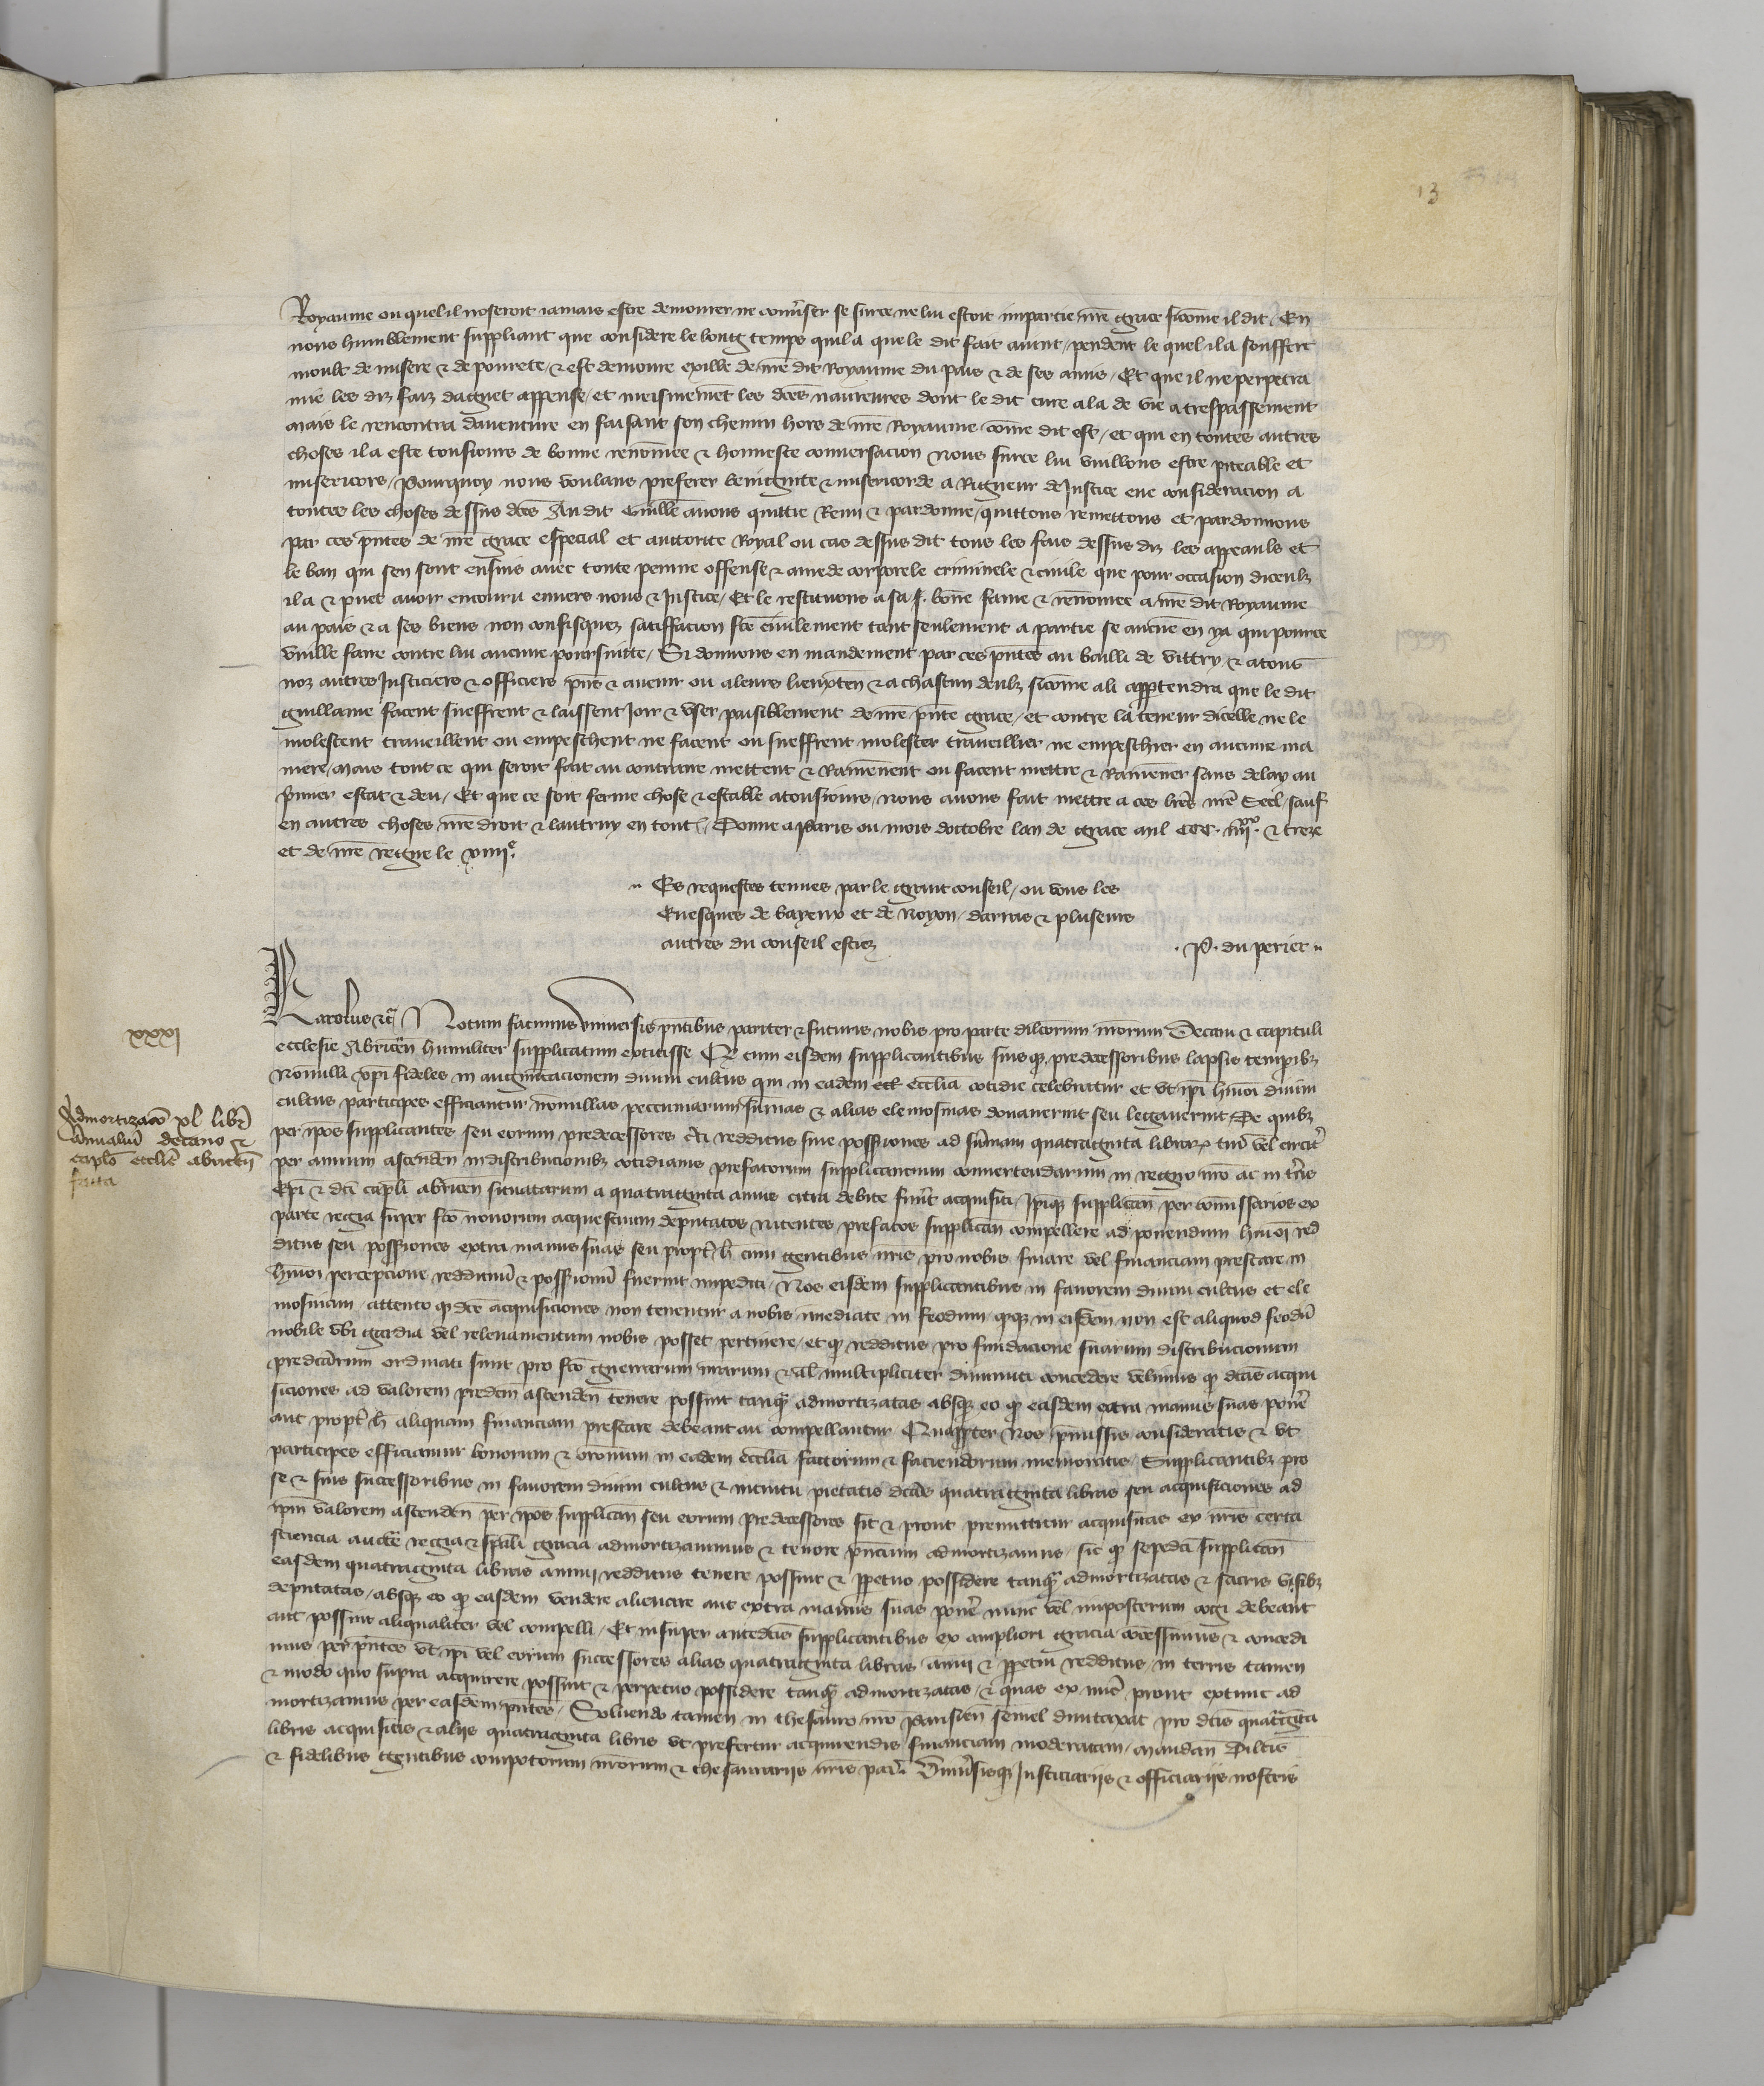 13
Royaume ou quel il noseroit iamais estre demourer ne conuser se sur ce ne lui estoit impartie nre grace sicome il dit / En
nous humblement suppliant que considere le long temps quil a que le dit fait auint / pendent le quel il a souffert
moult de misere & de pourete / & est demoure exille de nre dit Royaume du pais & de ses amis / Et que il ne perpetra
mie les diz faiz daguet appense / et meismement les dces naureures dont le dit cure ala de vie a trespassement
Mais le rencontra dauenture en faisant son chemin hors de nre Royaume come dit est / et qui en toutes autres
choses il a este tousiours de bonne renomee & honneste conuersacion Nous sur ce lui vuillons estre piteable et
misericors / Pourquoy nous voulans preferer benignite & misericorde a Rigueur de Justice eue consideracion a
toutes les choses dessus dces Au dit Guille auons quittie Remis & pardonne / quittons remettons et pardonnons
par ces pntes de nre grace especial et auctorite Royal ou cas dessus dit tous les fais dessus diz les appeaulx et
le ban qui sen sont ensuis auec toute peinne offense & amede corporele criminele & ciuile que pour occasion diceulx
il a & puet auoir encouru enuers nous & Justice / Et le restituons a sa f. bone fame & renomee a nre dit Royaume
au pais & a ses biens non confisquez satiffacion fce ciuilement tant seulement a partie se aucune en ya qui pour ce
vuille faire contre lui aucune poursuitte / Si donnons en mandement par ces pntes au bailli de Vittry & a touz
noz autres Justiciers & officiers pns & auenir ou a leurs lieuxten & a chascun deulx sicome a li appartendra que le dit
guillaume facent sueffrent & laissent Joir & vser paisiblement de nre pnte grace / et contre la teneur dicelle ne le
molestent traueillent ou empeschent ne facent ou sueffrent molester traueillier ne empeschier en aucune ma
niere / Mais tout ce qui seroit fait au contraire mettent & Ramenent ou facent mettre & Ramener sans delay au
pmier estat & deu / Et que ce soit ferme chose & estable a tousiours / nous auons fait mettre a ces lres nre Seel / sauf
en autres choses nre droit & lautruy en tout / Donne a Paris ou mois doctobre lan de grace mil CCC. iiiixx. & treze
et de nre regne le xiiiie.
Es requestes tenues par le grant conseil / ou vous les
Euesques de bayeux et de Noyon / darras & pluseurs
autres du conseil estiez
. P. du perier
Karolus &c Notum facimus vniuersis pntibus pariter & futuris nobis pro parte dilcorum nrorum Decani & capituli
ecclesie Abricen humiliter supplicatum extitisse Qr cum eisdem supplicantibus suisque predecessoribus lapsis tempibz
Nonnulli xpi fideles in augmentacionem diuini cultus qui in eadem eccl ecclia cotidie celebratur et vt ipi hmoi diuini
cultus participes efficiantur / nonnullas pecuniarum sumas & alias elemosinas donauerint seu legauerint / De quibz
per ipos supplicantes seu eorum predecessores cti redditus siue possessiones ad sumam quatraginta librarz tur vel circit
per annum ascenden in distribucionibz cotidianis prefatorum supplicancium conuertendarum in regno nro ac in tris
Epi & dci capli abricen situatarum a quatraginta annis citra debite fuert acquisiti / Ipique supplican per comissarios ex
parte regia super fco nouorum acquestuum deputatos nitentes prefatos supplican compellere ad ponendum hmoi red
ditus seu possessiones extra manus suas seu propt h cum gentibus nris pro nobis finare vel financiam prestare in
hmoi percepcione reddituu & possessionu fuerint impediti / Nos eisdem supplicantibus in fauorem diuini cultus et ele
mosinam / attento q dce acquisiciones non tenentur a nobis imediate in feodum / qz in eisdem non est aliquod feodu
nobile vbi gardia vel releuamentum nobis posset pertinere / et q redditus pro fundacione suarum distribucionum
predcarum ordinati sunt pro fco guerrarum nrarum & al multipliciter diminuti concedere velimus q dcas acqui
siciones ad valorem predcm ascenden tenere possint tanq admortizatas absqz eo q easdem extra manus suas pone
aut propt h aliquam financiam prestare debeant aut compellantur Quapropter Nos pmissis consideratis & vt
participes efficiamur bonorum & oronum in eadem ecclia factorum & faciendorum memoratis Supplicantibz pro
se & suis successoribus in fauorem diuini cultus & intuitu pietatis dcas quatraginta libras seu acquisiciones ad
ipm valorem ascenden per ipos supplican seu eorum predecessores sic & prout premittitur acquisitas ex nris certa
sciencia aucte regia & spali gracia admortizauimus & tenore pncium admortizamus / sic q sepedci supplican
easdem quatraginta libras annui redditus tenere possint & ppetuo possidere tanq admortizatas & sacris vsibz
deputatas / absqz eo q easdem vendere alienare aut extra manus suas pone nunc vel imposterum cogi debeant
aut possint aliqualiter vel compelli / Et insuper antedcis supplicantibus ex ampliori gracia concessimus & concedi
mus per pntes vt ipi vel eorum successores alias quatraginta libras annui & ppetui redditus / in terris tamen
& modo quo supra acquirere possint & perpetuo possidere tanq admortizatas / & quas ex nunc prout extunc ad
mortizamus per easdem pntes / Soluendo tamen in thesauro nro Parisien semel dumtaxat pro dcis quatraginta
libris acquisitis & alijs quatraginta libris vt prefertur acquirendis financiam moderatam / Mandan Dilcis
& fidelibus gentibus compotorum nrorum & thesaurarijs nris par. Vniusisqz Justiciarijs & officiarijs nostris
XXXI
Admortizacio xl libr
annualiu decano &
caplo ecclie abricen
facta